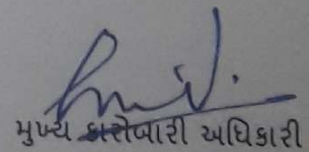 મુખ્ય કારોબારી અધિકારી